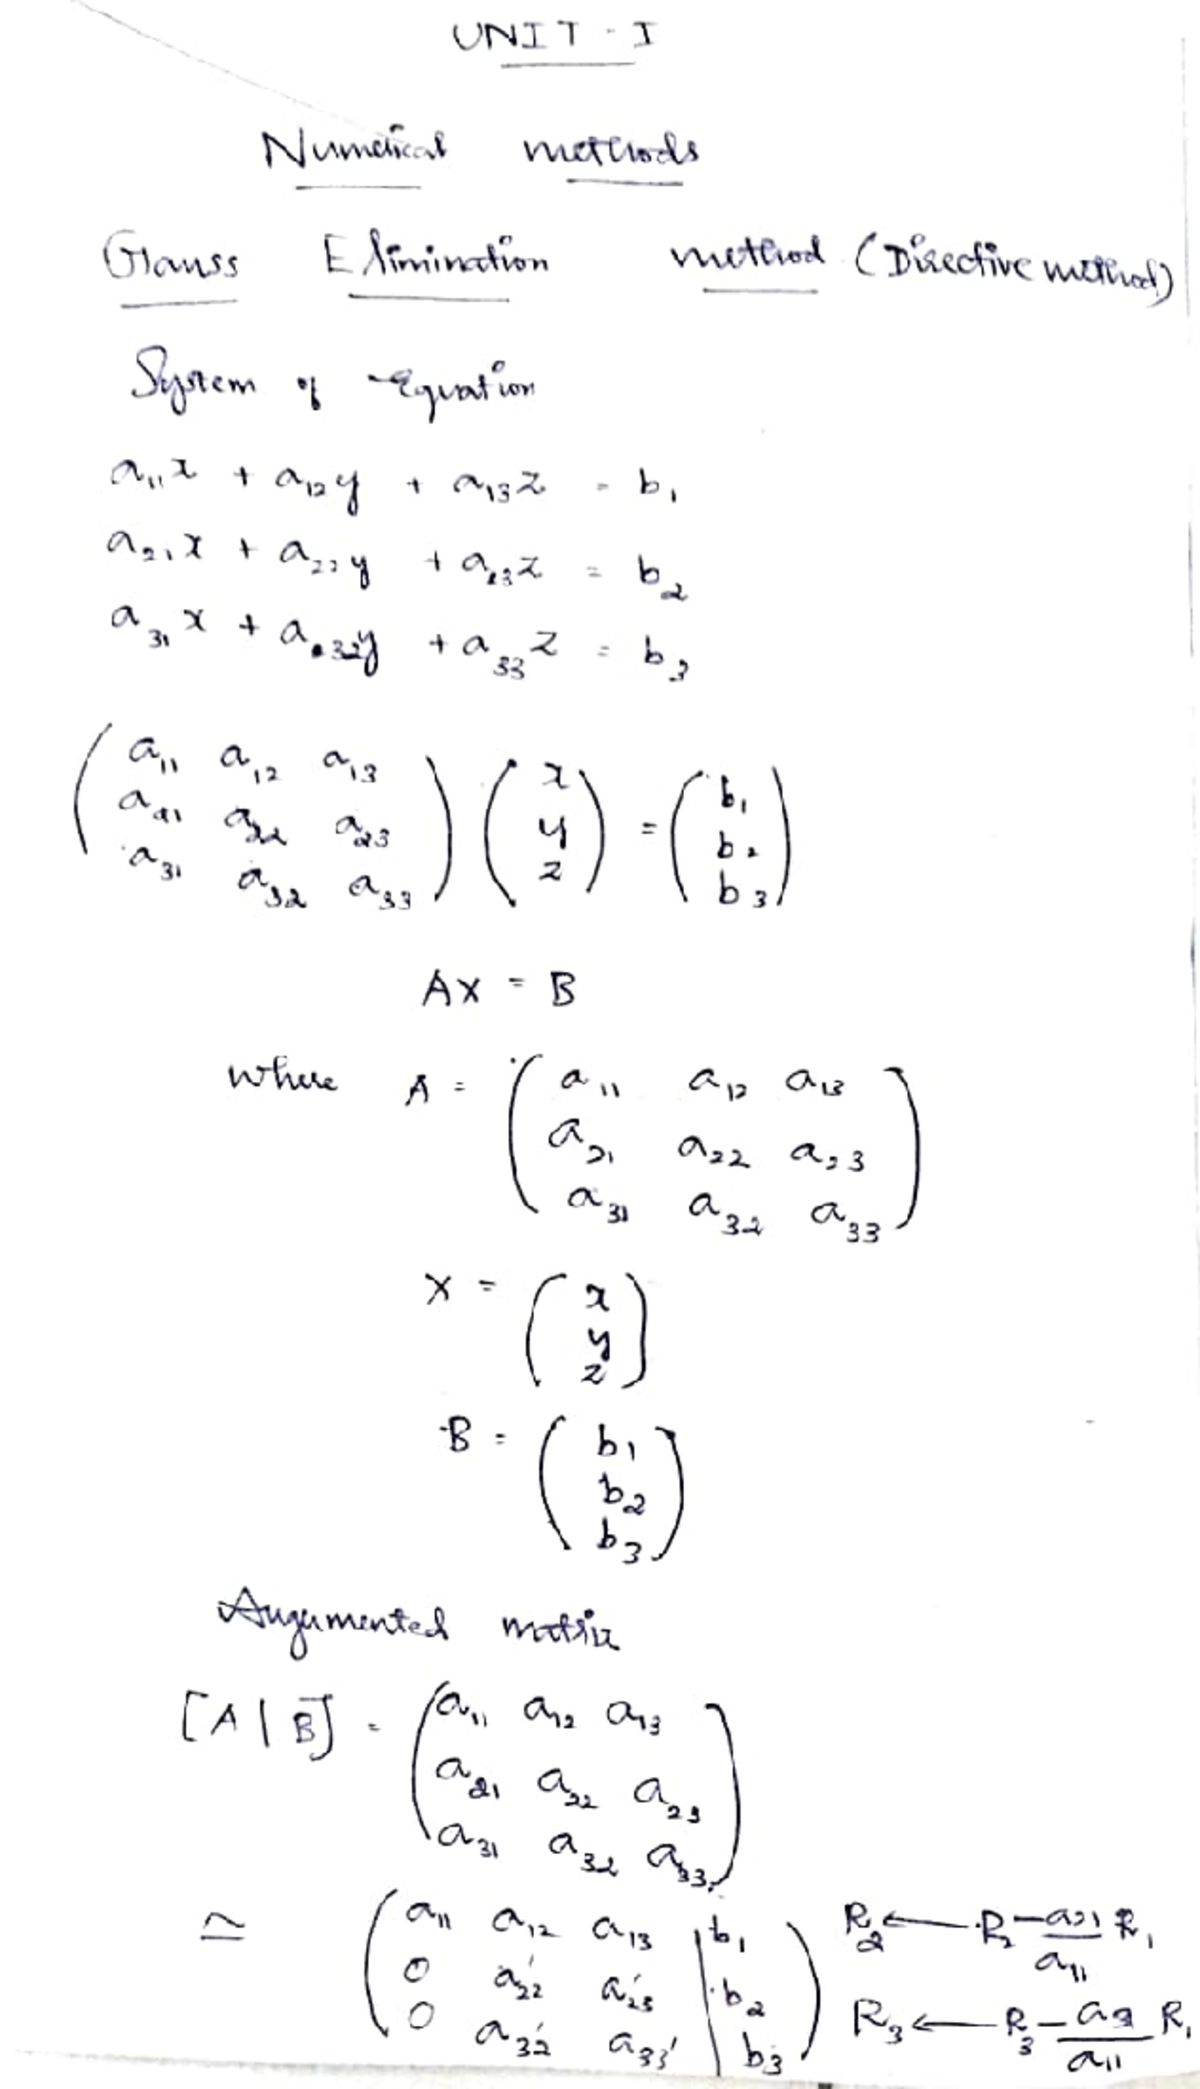 UNIT - I
Numerical methods
Gauss Elimination method (Directive method)
System of Equation
a₁₁x + a₁₂y + a₁₃z = b₁
a₂₁x + a₂₂y + a₂₃z = b₂
a₃₁x + a₃₂y + a₃₃z = b₃
( a₁₁ a₁₂ a₁₃ ) ( x ) = ( b₁ )
( a₂₁ a₂₂ a₂₃ ) ( y ) ( b₂ )
( a₃₁ a₃₂ a₃₃ ) ( z ) ( b₃ )
AX = B
where A = ( a₁₁ a₁₂ a₁₃ )
( a₂₁ a₂₂ a₂₃ )
( a₃₁ a₃₂ a₃₃ )
X = ( x )
( y )
( z )
B = ( b₁ )
( b₂ )
( b₃ )
Augumented matrix
[A | B] = ( a₁₁ a₁₂ a₁₃ )
( a₂₁ a₂₂ a₂₃ )
( a₃₁ a₃₂ a₃₃ )
≃ ( a₁₁ a₁₂ a₁₃ | b₁ ) R₂ ← R₂ - a₂₁/a₁₁ R₁
( 0 a₂₂' a₂₃' | b₂ )
( 0 a₃₂' a₃₃' | b₃ ) R₃ ← R₃ - a₃/a₁₁ R₁